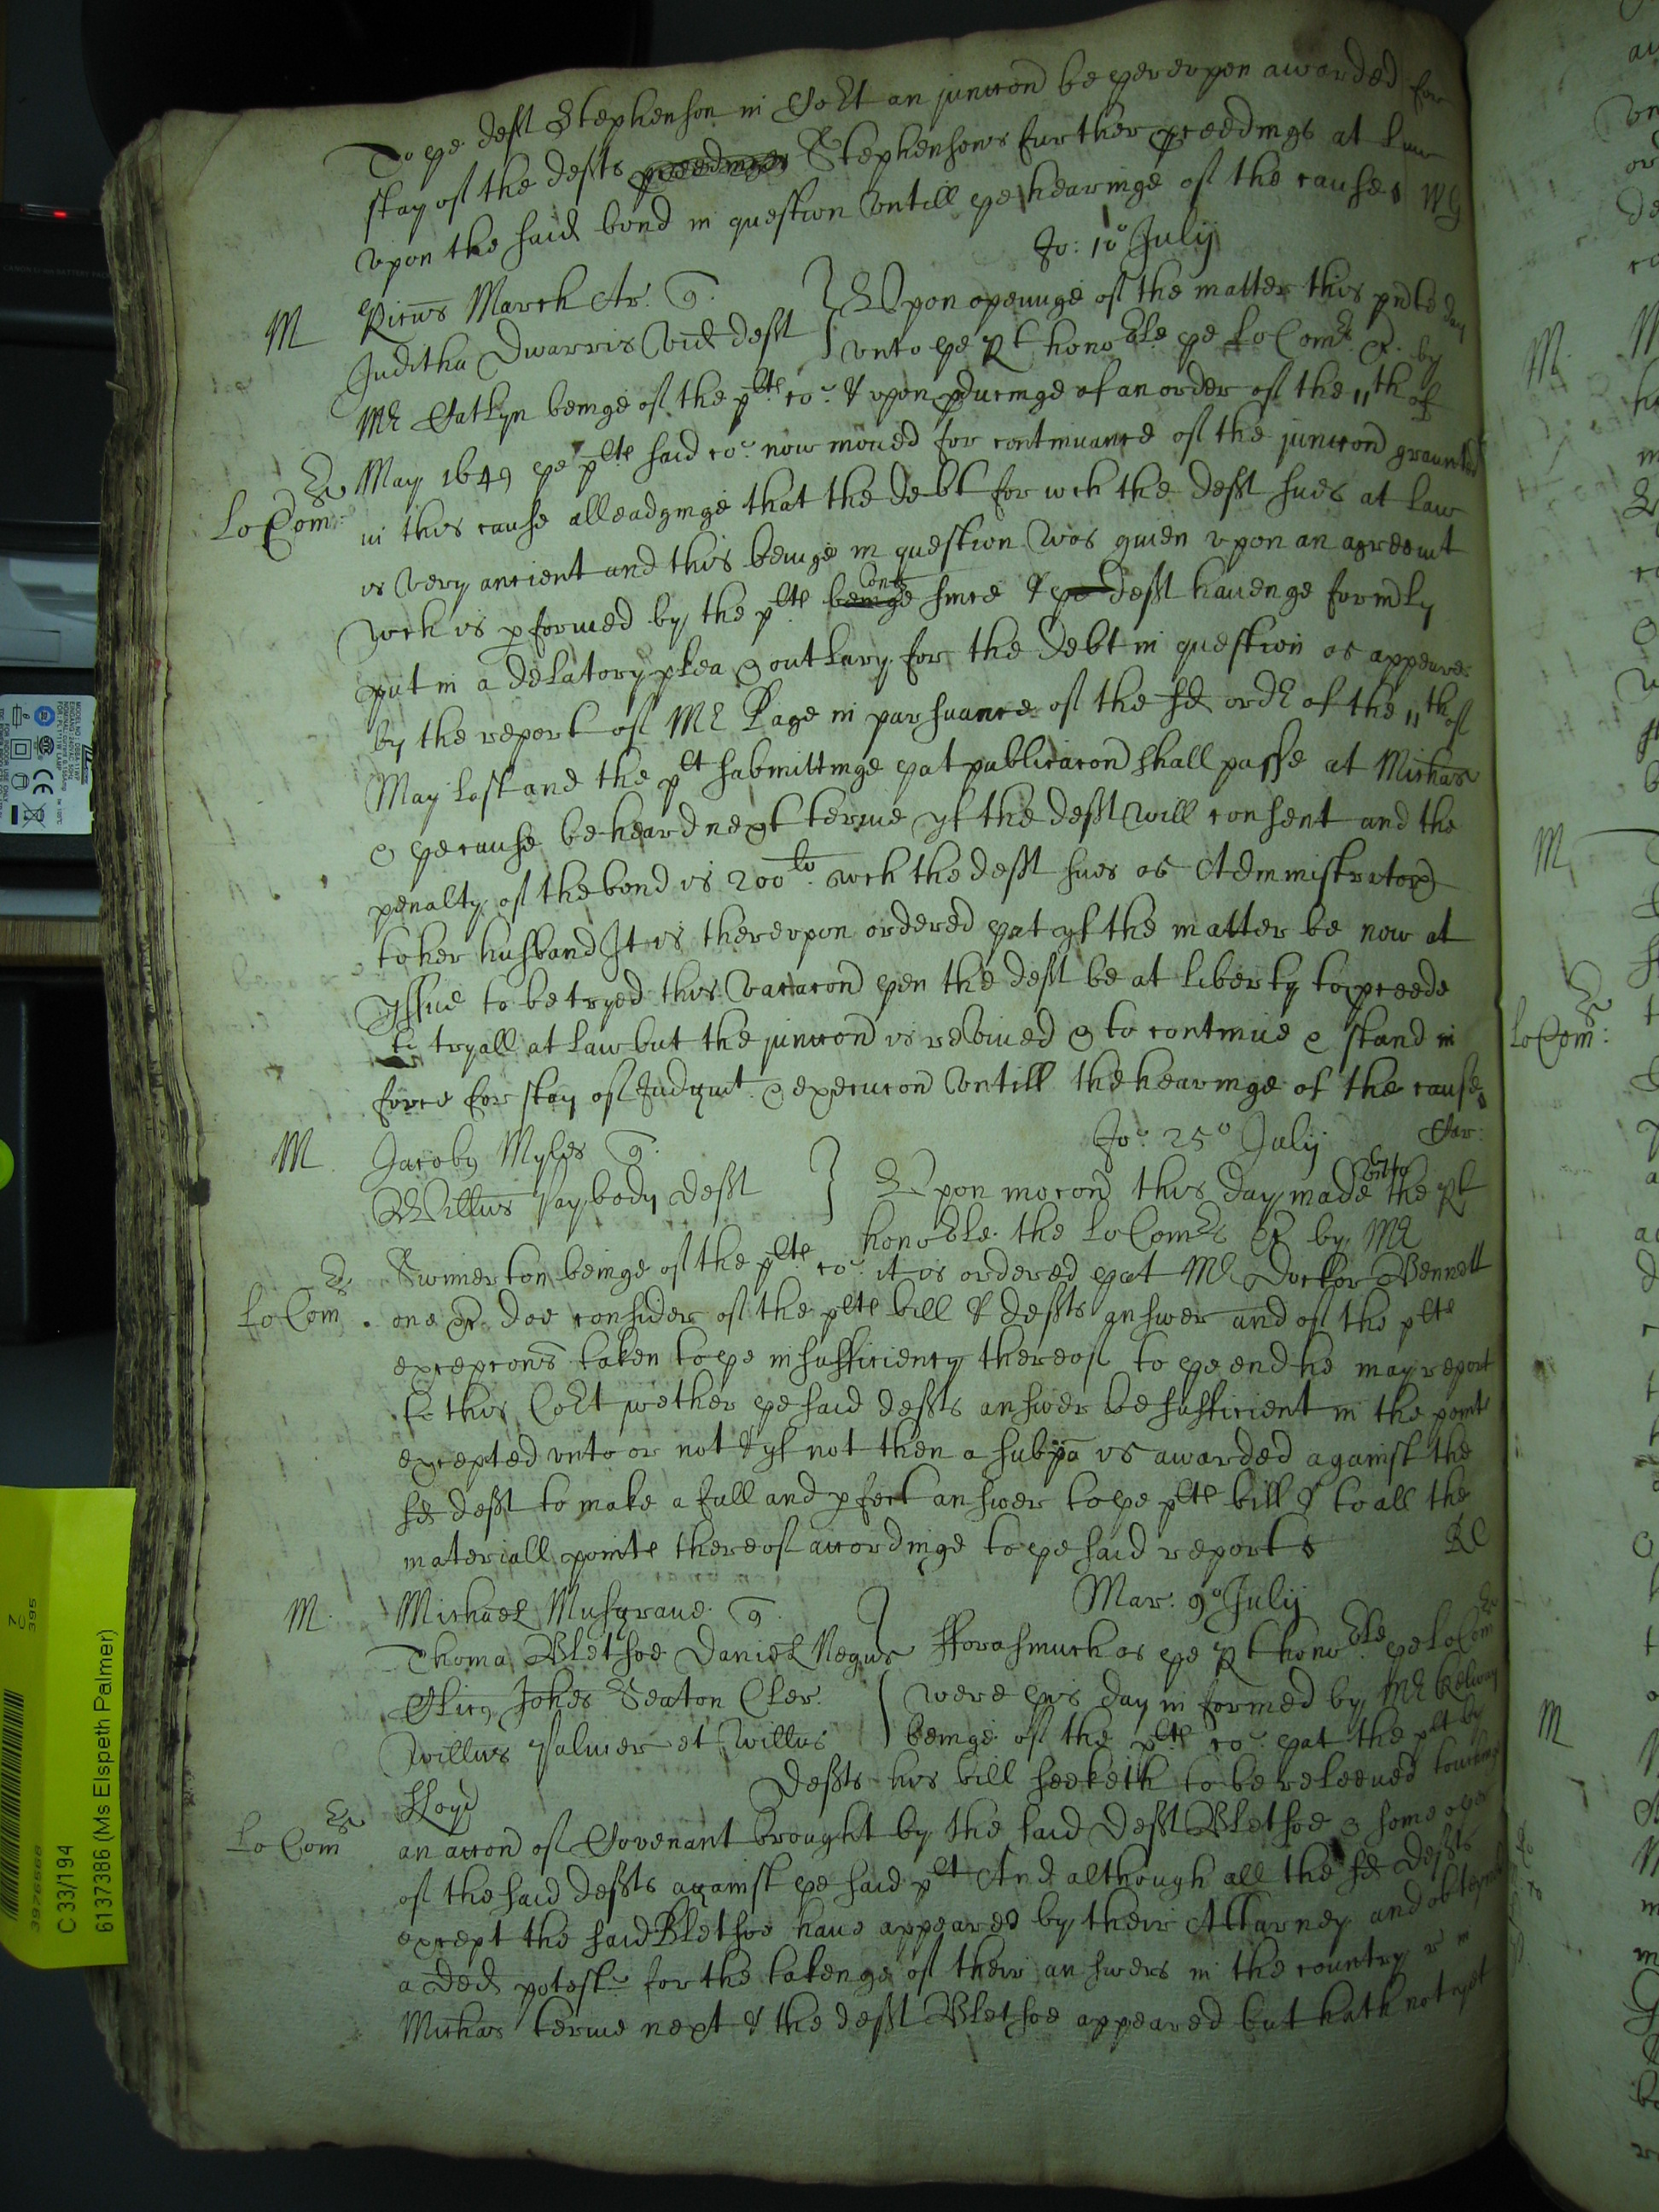 To ye deft Stephenson in Court an juncon be yereupon awarded for
stay of the defts proceedings Stephensons further proceedings at law
upon the said bond in question Untill ye hearinge of the causes WG
Jo: 10º July
M Ricus March Ar. q. } Upon openinge of the matter this pnte day
Juditha Dwarris Vid deft } unto ye Rt honoble ye Lo Comrs &c by
Mr Catlyn beinge of the plts co: & upon pducinge of an order of the 11th of
May 1649 ye plts said co: now moved for continuance of the juncon graunted
Lo Comrs in this cause alleadginge that the debt for wch the deft sues at Law
is Very antient and this beinge in question Was given upon an agreemt
Wch is pformed by the plts beinge longe since & ye deft havenge formerly
put in a delatory plea & outlary for the debt in question as appeares
by the report of Mr Page in pursuance of the sd order of the 11th of
May last and the plt submittinge yat publicacon shall passe at Michas
& ye cause be heard next terme yf the deft Will consent and the
penalty of the bond is 200li wch the deft sues as Administrator
to her husband It is thereupon ordered yat yf the matter be now at
Yssue to be tryed this Vacacon yen the deft be at liberty to proceede
to tryall at Law but the juncon is revived & to continue & stand in
force for stay of Judgmt & execucon Untill the hearinge of the cause
Jo: 25º July Car:
M. Jacobus Myles q. } Upon mocon this day made unto the Rt
Willus Paybody deft } honoble the Lo Comrs &c by Mr
Swinerton beinge of the plts co: it is ordered yat Mr Doctor Bennett
Lo Comrs one &c doe consider of the plts bill & defts answer and of the plts
excepcons taken to ye insufficiency thereof to ye end he may report
to this Court wether ye said defts answer be sufficient in the points
excepted unto or not & yf not then a subpa is awarded against the
sd deft to make a full and pfect answer to ye plts bill & to all the
materiall points thereof accordinge to ye said report RC
Mar: 9º July
M. Michael Musgrave q.
Thoma Blethoe Daniel Negus } fforasmuch as ye Rt honoble ye Lo Comrs
Seaton Cler. } were this day informed by Mr Kelway
Willus Palmer et Willus } beinge of the plts co: yat the plt by
ffloyd Defts his bill seeketh to be releeved touchinge
Lo Comrs an accon of Covenant brought by the said deft Blethoe & some oyer
of the said defts against ye said plt And although all the sd defts
except the said Blethoe have appeared by their Attarney and obteyned
a ded potest: for the takenge of their answers in the country r in
Michas terme next & the deft Blethoe appeared but hath not yet
C 33/194
6137386 (Ms Elspeth Palmer)
3926588